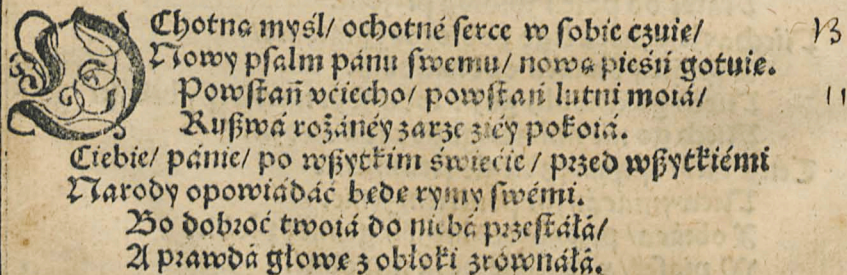 OChotną myśl/ ochotné serce w sobie czuię/ 13
Nowy psalm pánu swemu/ nową pieśń gotuię.
Powstań vciecho/ powstań lutni moiá/ 11
Ruszwá rożánéy zarze z iéy pokoiá.
Ciebie/ pánie/ po wszytkim świećie/ przed wszytkiémi
Narody opowiádáć będę rymy swémi.
Bo dobroć twoiá do niebá przestáłá/
A prawdá głowę z obłoki zrównáłá.